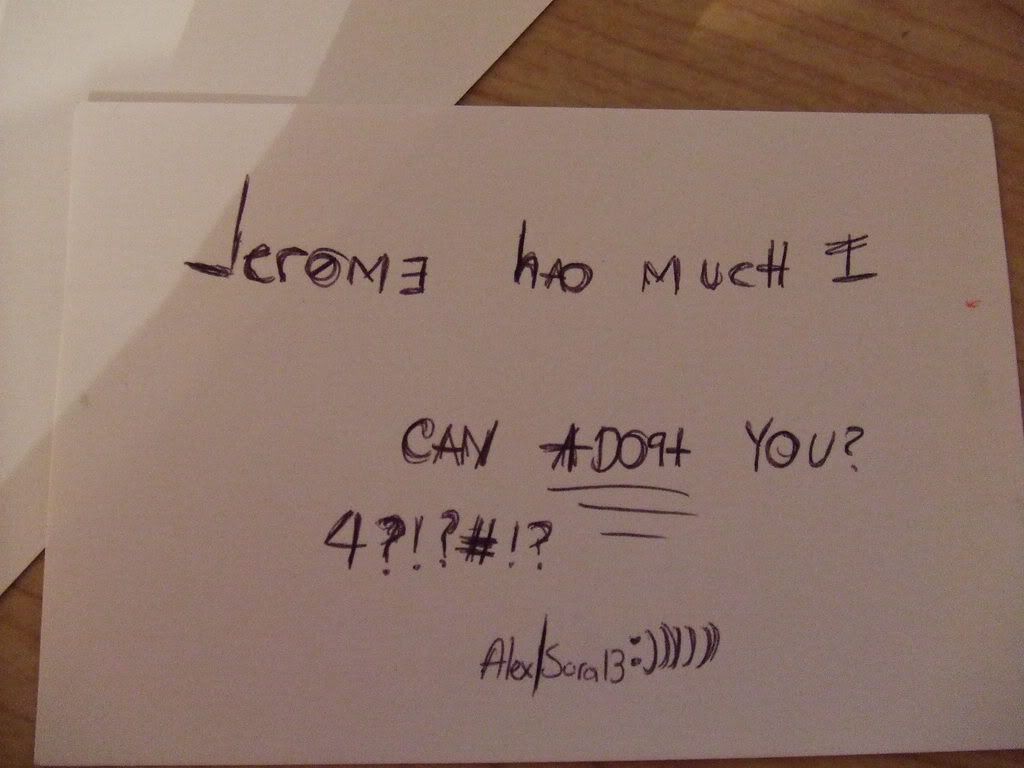 JerOME HAO MUCH I
CAN ADOPt YOU?
4?!?#!?
Alex/Sara13:))))))